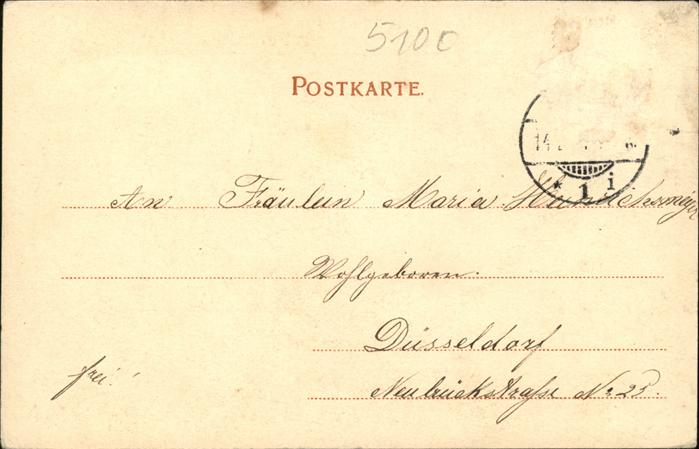 5100
POSTKARTE.
14
* 1 i
An Fräulein Maria
Wohlgeboren.
Düsseldorf
frei!
Neubrückstraße No 25.